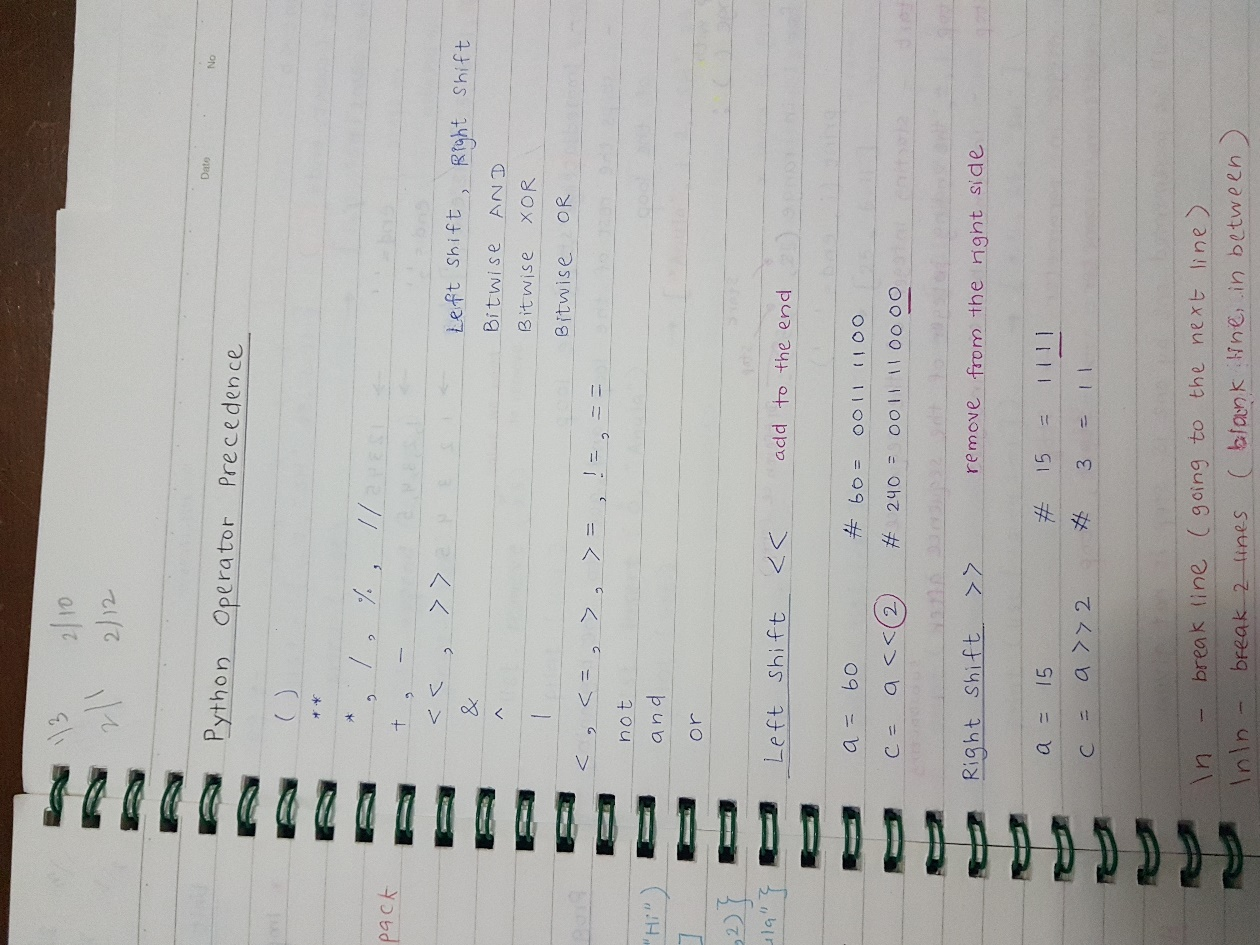 1/3 2/10
2/1 2/12
Date No
Python Operator Precedence
( )
**
* , / , % , //
+ , -
<< , >> Left shift , Right shift
& Bitwise AND
^ Bitwise XOR
| Bitwise OR
< , <= , > , >= , != , ==
not
and
or
Left shift << add to the end
a = 60 # 60 = 0011 1100
c = a << 2 # 240 = 0011110000
Right shift >> remove from the right side
a = 15 # 15 = 1111
c = a >> 2 # 3 = 11
\n - break line (going to the next line)
\n\n - break 2 lines ( blank line in between)
pack
"Hi")
]
2)}
ula"}